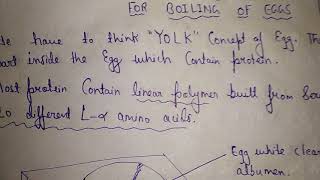 FOR BOILING OF EGGS
de have to think "YOLK" Concept of Egg. Th
art inside the Egg which Contain protein.
ost protein Contain linear polymer built from
20 different L-α amino acids.
Egg white clea
albumen.